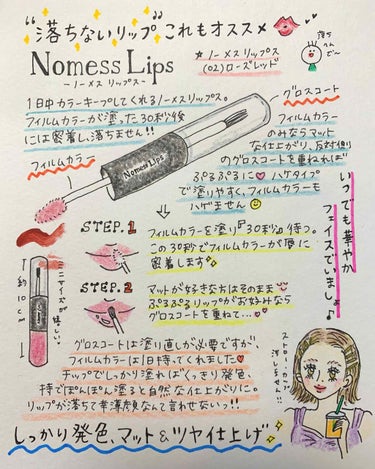 “落ちないリップ”これもオススメ
Nomess Lips
〜ノーメス リップス〜
★ノーメスリップス
(02)ローズレッド
落ち
へんで〜
1日中カラーキープしてくれるノーメスリップス。
フィルムカラーが塗った30秒後
には密着し落ちません!!
グロスコート
フィルムカラー
のみならマット
な仕上がり、反対側
のグロスコートを重ねれば
ぷるぷるに ハケタイプ
で塗りやすく、フィルムカラーも
ハゲません
フィルムカラー
Nomess Lips
STEP.1
フィルムカラーを塗り『30秒』待つ。
この30秒でフィルムカラーが唇に
密着します
STEP.2
マットが好きな方はそのまま
ぷるぷるリップがお好みなら
グロスコートを重ねて…
いつでも華やか
フェイスでいましょ♪
約10cm
ミニサイズが嬉しい。
グロスコートは塗り直しが必要ですが、
フィルムカラーは1日持ってくれました
チップでしっかり塗ればくっきり発色、
指でぽんぽん塗ると自然な仕上がりに。
リップが落ちて幸薄顔なんて言わせないっ!!
ストローカップ
汚しません!!
しっかり発色、マット&ツヤ仕上げ